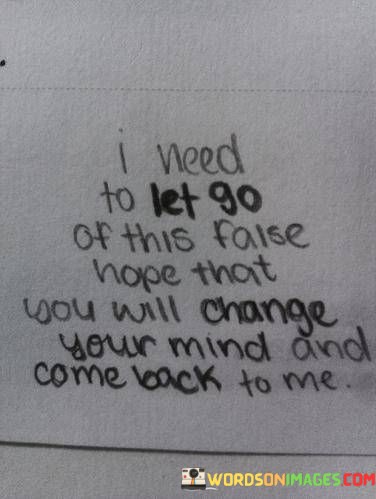 i need
to let go
of this false
hope that
you will change
your mind and
come back to me.
WORDSONIMAGES.COM